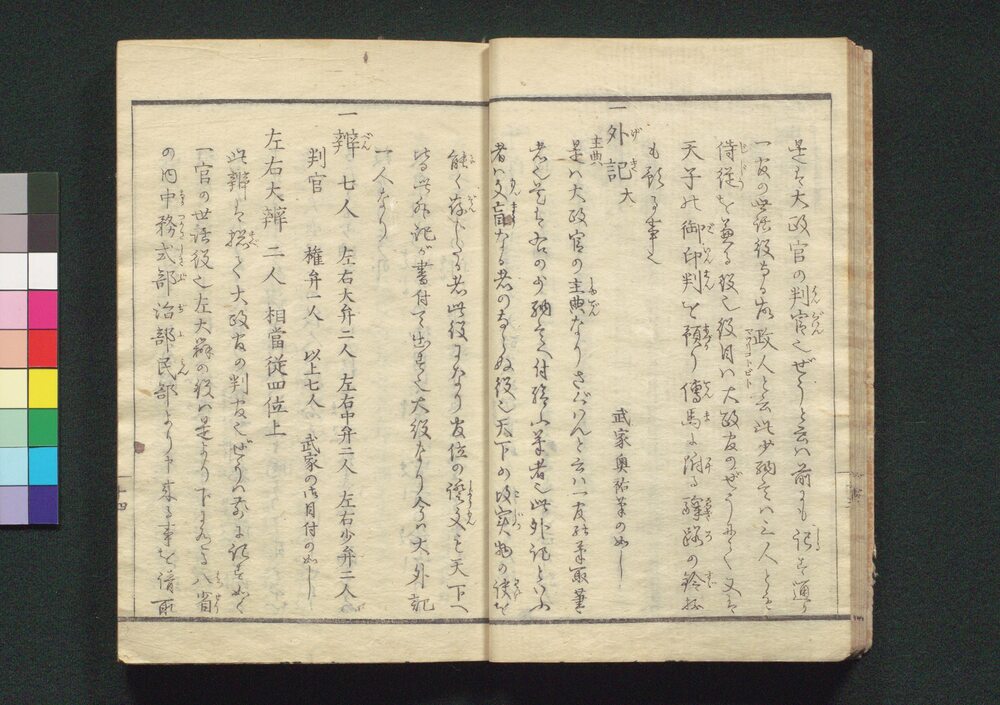 是は大政官の判官也ぜうと云は前にも記す通り
一官の世話役なる故政人と云此少納言は三人ともに
侍従を兼る役也役目は大政官のぜうにて又は
天子の御印判を預り傳馬に附る驛路の鈴抔
も預る事也
一外記 大 武家奥祐筆の如し
主典
是は大政官の主典なりさくはんと云は一官の筆取
者也尤も右の少納言へ付 筆者也此外記といふ
者は文盲なる者のならぬ役也天下の故実物の使を
能く存じたる者此役になり官位の證文も天下へ
皆此外記が書付て出す也大役なり今は大外記
一人なり
一辨 七人 左右大弁二人 左右中弁二人 左右少弁二人
判官 權弁一人 以上七人 武家の御目付の如し
左右大辨 二人 相當従四位上
此辨は捴て大政官の判官也ぜうは前に記す如く
一官の世話役也左大辨の役は是より下にある八省
の内中務式部治部民部より申来る事を